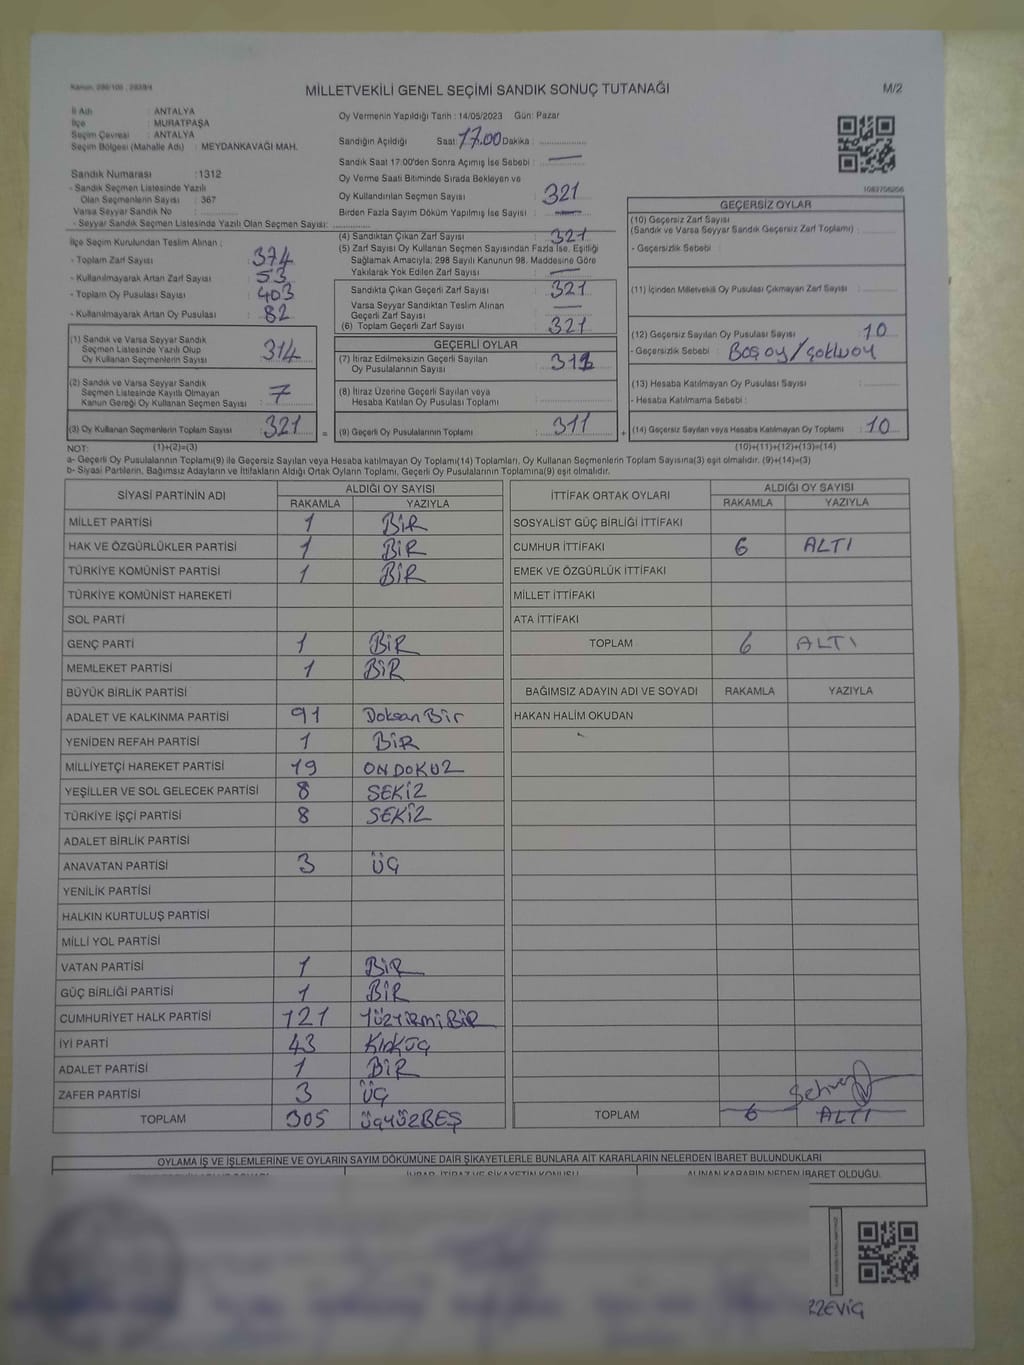 MİLLETVEKİLİ GENEL SEÇİMİ SANDIK SONUÇ TUTANAĞI
M/2
İl Adı : ANTALYA
İlçe : MURATPAŞA
Seçim Çevresi : ANTALYA
Seçim Bölgesi (Mahalle Adı) : MEYDANKAVAĞI MAH.
Sandık Numarası :1312
- Sandık Seçmen Listesinde Yazılı
Olan Seçmenlerin Sayısı : 367
Varsa Seyyar Sandık No :
- Seyyar Sandık Seçmen Listesinde Yazılı Olan Seçmen Sayısı:
Oy Vermenin Yapıldığı Tarih : 14/05/2023 Gün: Pazar
Sandığın Açıldığı Saat: 17.00 Dakika :
Sandık Saat 17:00'den Sonra Açımış İse Sebebi : —
Oy Verme Saati Bitiminde Sırada Bekleyen ve
Oy Kullandırılan Seçmen Sayısı : 321
Birden Fazla Sayım Döküm Yapılmış İse Sayısı : —
1082706206
İlçe Seçim Kurulundan Teslim Alınan :
- Toplam Zarf Sayısı : 374
- Kullanılmayarak Artan Zarf Sayısı : 53
- Toplam Oy Pusulası Sayısı : 403
- Kullanılmayarak Artan Oy Pusulası : 82
(1) Sandık ve Varsa Seyyar Sandık
Seçmen Listesinde Yazılı Olup
Oy Kullanan Seçmenlerin Sayısı : 314
(2) Sandık ve Varsa Seyyar Sandık
Seçmen Listesinde Kayıtlı Olmayan
Kanun Gereği Oy Kullanan Seçmen Sayısı : 7
(3) Oy Kullanan Seçmenlerin Toplam Sayısı : 321 =
(4) Sandıktan Çıkan Zarf Sayısı : 321
(5) Zarf Sayısı Oy Kullanan Seçmen Sayısından Fazla İse, Eşitliği
Sağlamak Amacıyla; 298 Sayılı Kanunun 98. Maddesine Göre
Yakılarak Yok Edilen Zarf Sayısı : —
Sandıkta Çıkan Geçerli Zarf Sayısı : 321
Varsa Seyyar Sandıktan Teslim Alınan
Geçerli Zarf Sayısı : —
(6) Toplam Geçerli Zarf Sayısı : 321
GEÇERLİ OYLAR
(7) İtiraz Edilmeksizin Geçerli Sayılan
Oy Pusulalarının Sayısı : 311
(8) İtiraz Üzerine Geçerli Sayılan veya
Hesaba Katılan Oy Pusulası Toplamı :
(9) Geçerli Oy Pusulalarının Toplamı : 311 +
GEÇERSİZ OYLAR
(10) Geçersiz Zarf Sayısı
(Sandık ve Varsa Seyyar Sandık Geçersiz Zarf Toplamı) :
- Geçersizlik Sebebi :
(11) İçinden Milletvekili Oy Pusulası Çıkmayan Zarf Sayısı :
(12) Geçersiz Sayılan Oy Pusulası Sayısı : 10
- Geçersizlik Sebebi : Boş oy/çoklu oy
(13) Hesaba Katılmayan Oy Pusulası Sayısı :
- Hesaba Katılmama Sebebi :
(14) Geçersiz Sayılan veya Hesaba Katılmayan Oy Toplamı : 10
NOT: (1)+(2)=(3) (10)+(11)+(12)+(13)=(14)
a- Geçerli Oy Pusulalarının Toplamı(9) ile Geçersiz Sayılan veya Hesaba katılmayan Oy Toplamı(14) Toplamları, Oy Kullanan Seçmenlerin Toplam Sayısına(3) eşit olmalıdır. (9)+(14)=(3)
b- Siyasi Partilerin, Bağımsız Adayların ve İttifakların Aldığı Ortak Oyların Toplamı, Geçerli Oy Pusulalarının Toplamına(9) eşit olmalıdır.
SİYASİ PARTİNİN ADI ALDIĞI OY SAYISI
RAKAMLA YAZIYLA
MİLLET PARTİSİ 1 BİR
HAK VE ÖZGÜRLÜKLER PARTİSİ 1 BİR
TÜRKİYE KOMÜNİST PARTİSİ 1 BİR
TÜRKİYE KOMÜNİST HAREKETİ
SOL PARTİ
GENÇ PARTİ 1 BİR
MEMLEKET PARTİSİ 1 BİR
BÜYÜK BİRLİK PARTİSİ
ADALET VE KALKINMA PARTİSİ 91 Doksan Bir
YENİDEN REFAH PARTİSİ 1 BİR
MİLLİYETÇİ HAREKET PARTİSİ 19 ONDOKUZ
YEŞİLLER VE SOL GELECEK PARTİSİ 8 SEKİZ
TÜRKİYE İŞÇİ PARTİSİ 8 SEKİZ
ADALET BİRLİK PARTİSİ
ANAVATAN PARTİSİ 3 ÜÇ
YENİLİK PARTİSİ
HALKIN KURTULUŞ PARTİSİ
MİLLİ YOL PARTİSİ
VATAN PARTİSİ 1 BİR
GÜÇ BİRLİĞİ PARTİSİ 1 BİR
CUMHURİYET HALK PARTİSİ 121 YÜZYİRMİBİR
İYİ PARTİ 43 KIRKÜÇ
ADALET PARTİSİ 1 BİR
ZAFER PARTİSİ 3 ÜÇ
TOPLAM 305 ÜÇYÜZBEŞ
İTTİFAK ORTAK OYLARI ALDIĞI OY SAYISI
RAKAMLA YAZIYLA
SOSYALİST GÜÇ BİRLİĞİ İTTİFAKI
CUMHUR İTTİFAKI 6 ALTI
EMEK VE ÖZGÜRLÜK İTTİFAKI
MİLLET İTTİFAKI
ATA İTTİFAKI
TOPLAM 6 ALTI
BAĞIMSIZ ADAYIN ADI VE SOYADI RAKAMLA YAZIYLA
HAKAN HALİM OKUDAN
TOPLAM 6 ALTI
OYLAMA İŞ VE İŞLEMLERİNE VE OYLARIN SAYIM DÖKÜMÜNE DAİR ŞİKAYETLERLE BUNLARA AİT KARARLARIN NELERDEN İBARET BULUNDUKLARI
İHBAR, İTİRAZ VE ŞİKAYETİN KONUSU ALINAN KARARIN NEDEN İBARET OLDUĞU